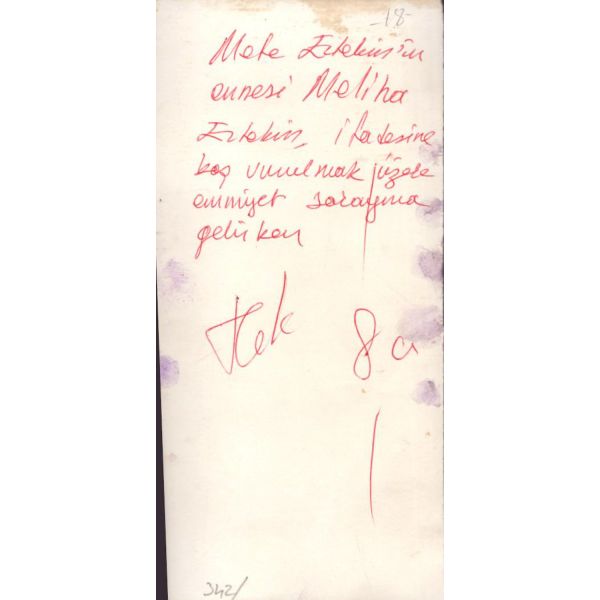 -18-
Mete Ertekin'in
annesi Meliha
Ertekin, ifadesine
baş vurulmak üzere
emniyet sarayına
gelirken
Tek 8 a
342/